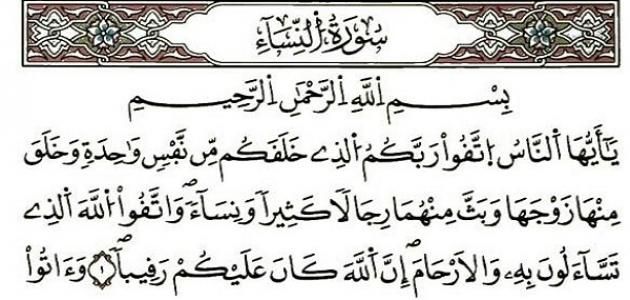 سُورَةُ اُلنِّسَآءِ
بِسْمِ اِللَّهِ اِلرَّحْمَٰنِ اِلرَّحِيمِ
يَٰٓأَيُّهَا اَلنَّاسُ اُتَّقُواْ رَبَّكُمُ اُلذِے خَلَقَكُم مِّن نَّفْسٖ وَٰحِدَةٖ وَخَلَقَ
مِنْهَا زَوْجَهَا وَبَثَّ مِنْهُمَا رِجَالاٗ كَثِيراٗ وَنِسَآءٗۖ وَاتَّقُواْ اُللَّهَ اَلذِے
تَسَّآءَلُونَ بِهِۦ وَالَارْحَامَۖ إِنَّ اَللَّهَ كَانَ عَلَيْكُمْ رَقِيباٗۖ ١ وَءَاتُواْ